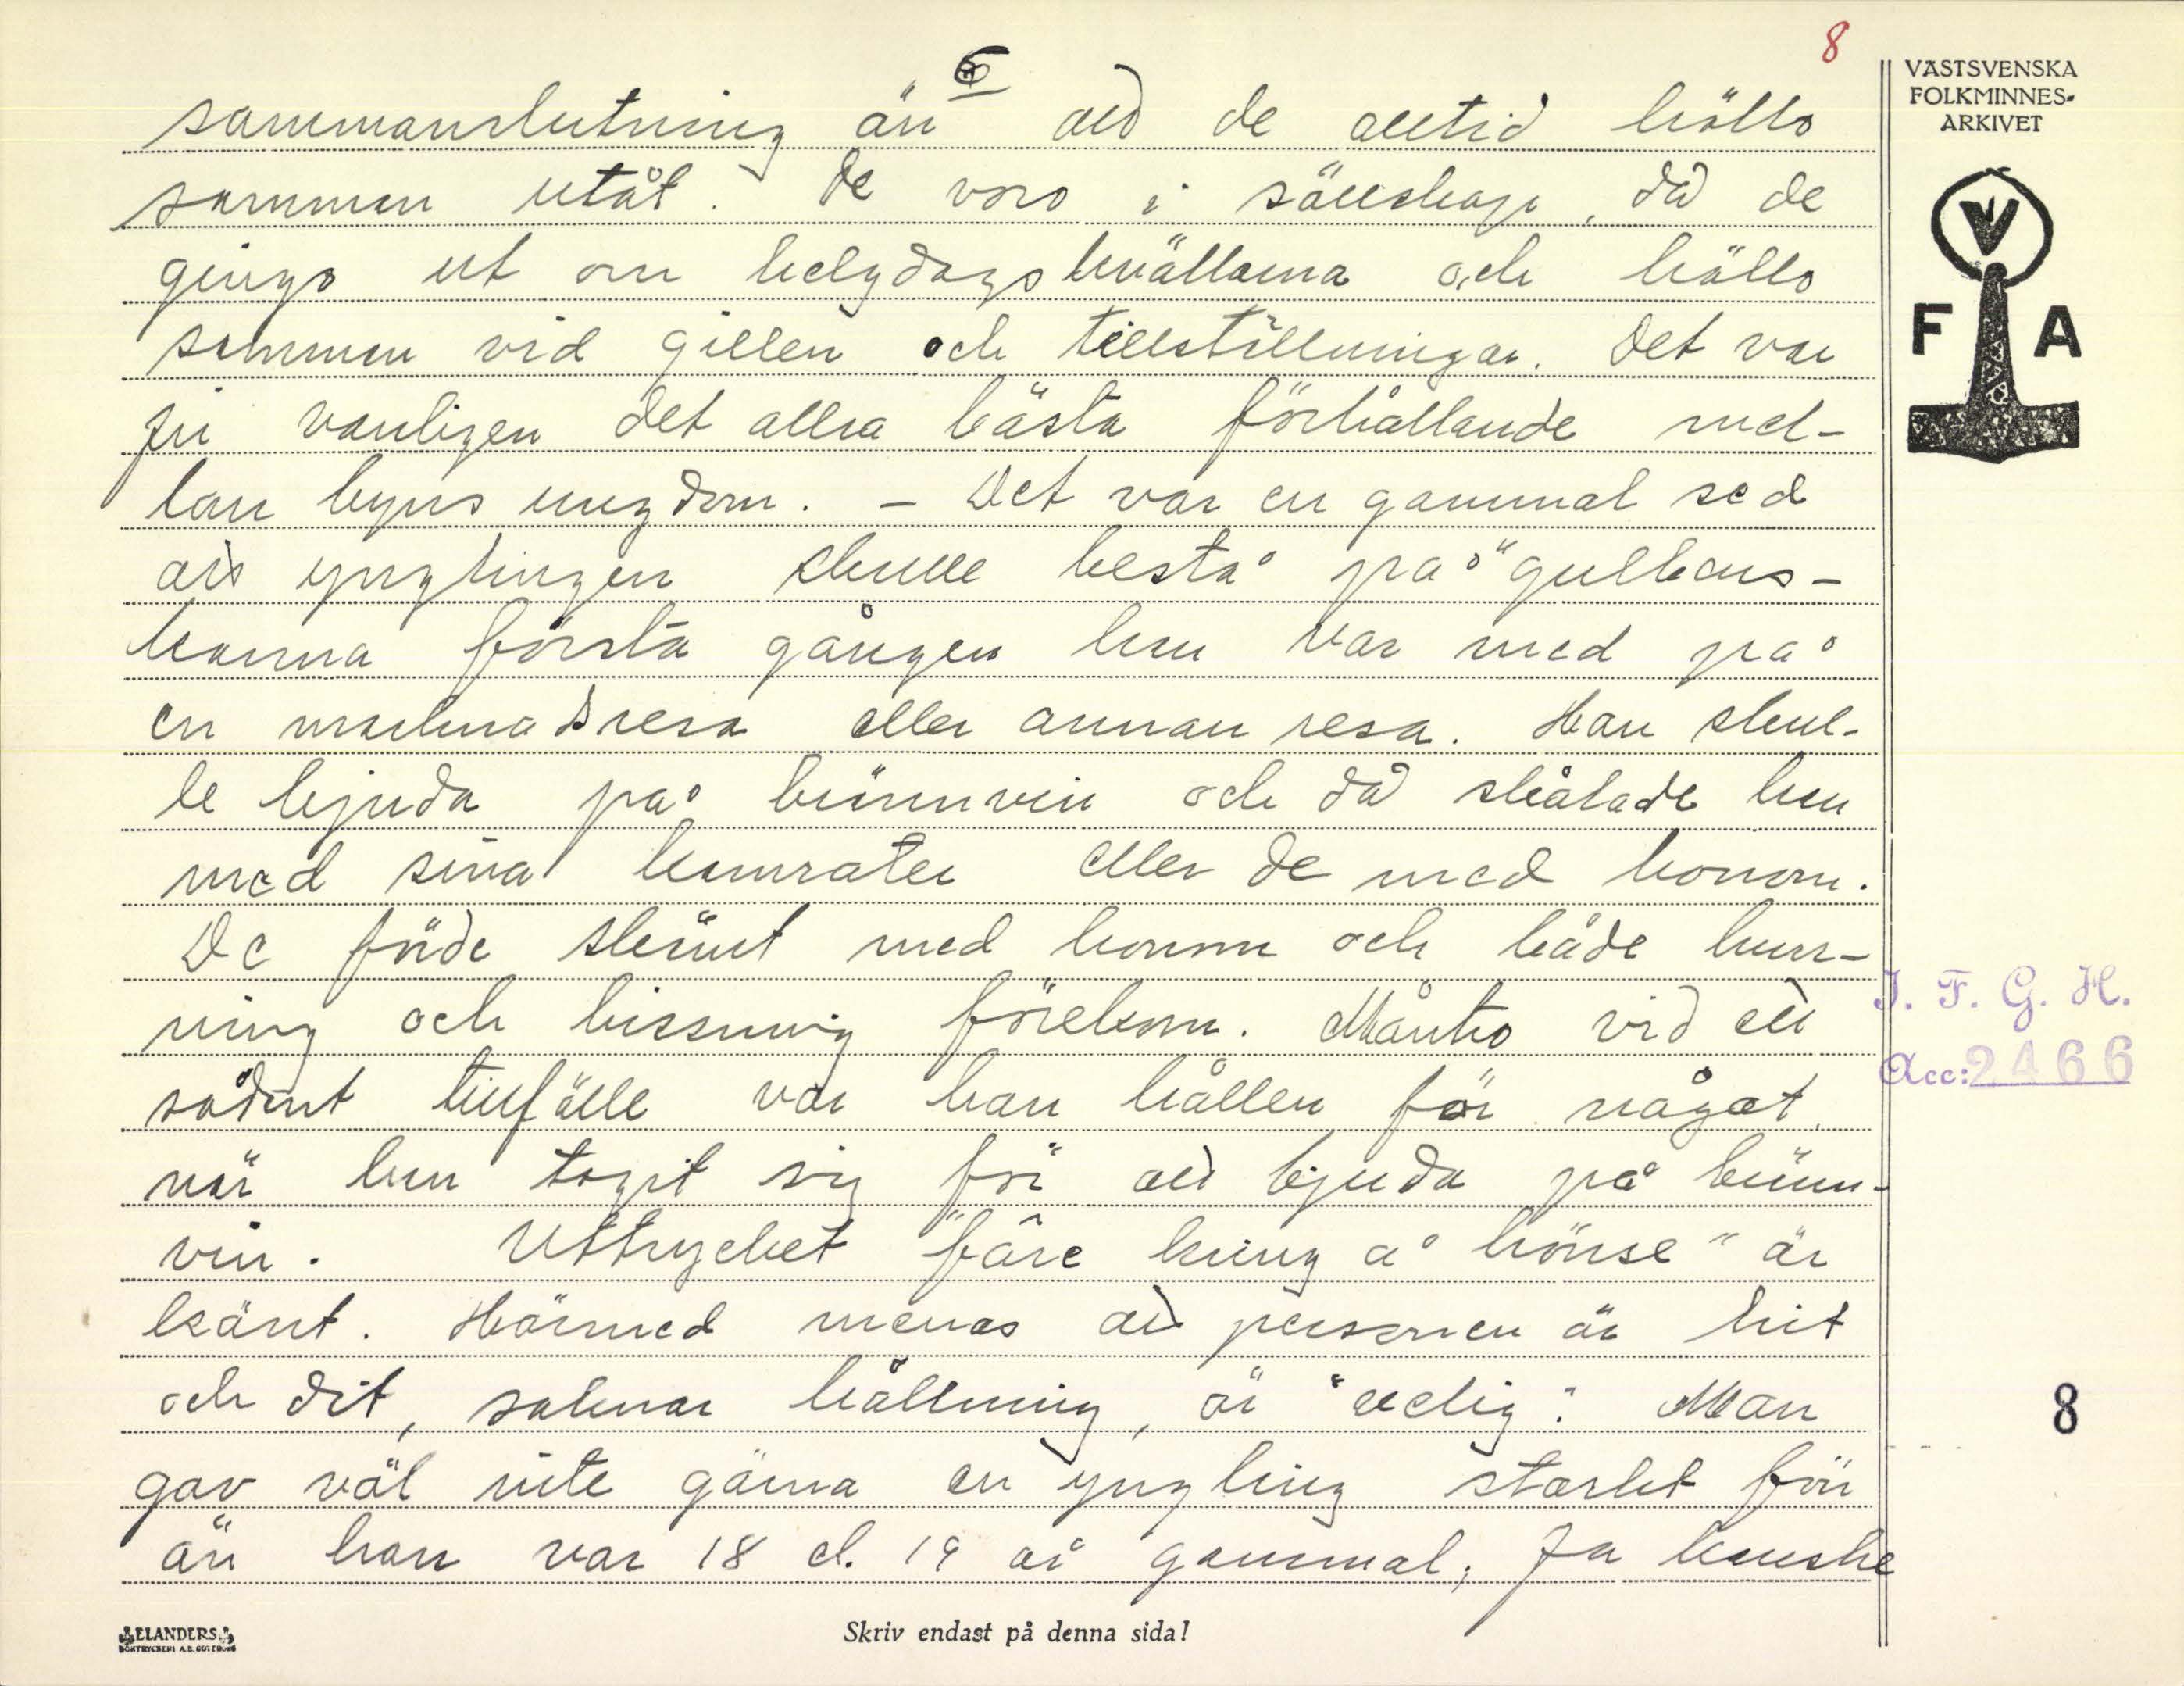 8
6
VÄSTSVENSKA
FOLKMINNES-
ARKIVET
V
F A
sammanslutning än att de alltid höllo
samman utåt. De voro i sällskap, då de
gingo ut om helgdagskvällarna och höllo
samman vid gillen och tillställningar. Det var
ju vanligen det allra bästa förhållande mel-
lan byns ungdom. – Det var en gammal sed
att ynglingen skulle bestå på "gulbens-
kanna första gången han var med på
en marknadsresa eller annan resa. Han skul-
le bjuda på brännvin och då skålade han
med sina kamrater eller de med honom.
De förde skämt med honom och både hurr-
ning och hissning förekom. Månko vid ett
sådant tillfälle var han hållen för något,
när han tagit sig för att bjuda på bränn-
vin. Uttrycket "båre kring å hönse" är
känt. Härmed menas att personen är hit
och dit, saknar hållning, är "velig". Man
gav väl inte gärna en yngling starkt förr
än han var 18 el. 19 år gammal, ja kanske
I. F. G. H.
Acc: 2466
8
ELANDERS
BOKTRYCKERI A.B. GÖTEBORG
Skriv endast på denna sida!